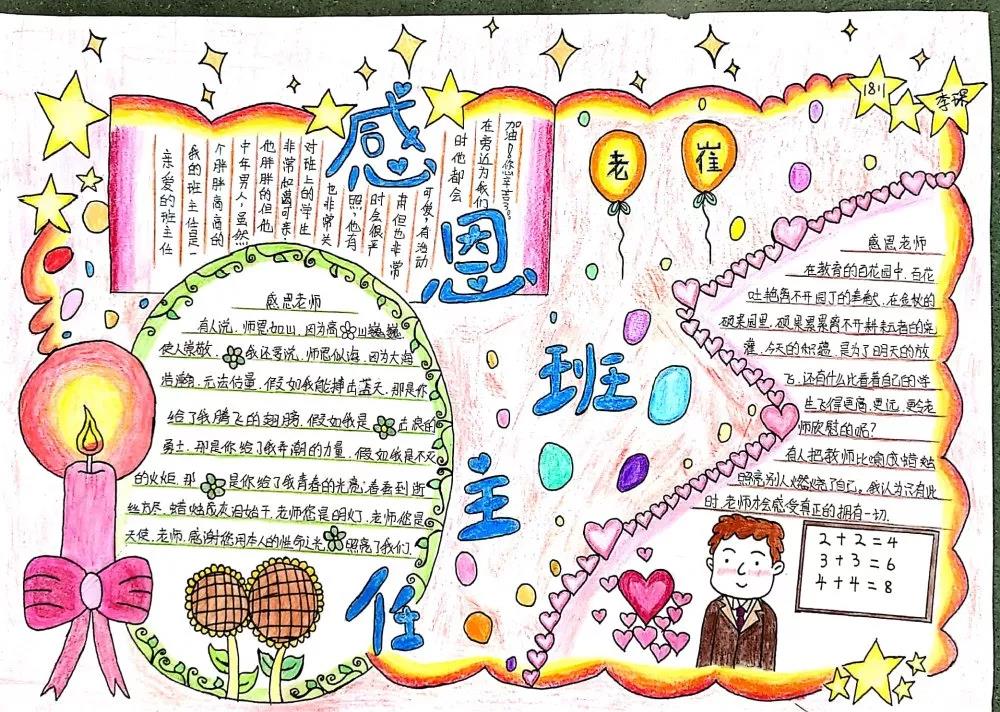 感恩班主任
1811
李琛
老崔
亲爱的班主任
我的班主任是一
个胖胖高高的
中年男人,虽然
他胖胖的但他
非常的可亲.
对班上的学生
也非常关
照,他有
时会很严
肃但也非常
可爱,有活动
时他都会
在旁边为我们
加油!您辛苦了。
感恩老师
有人说,师恩如山,因为高山巍巍,
使人崇敬.我还要说,师恩似海,因为大海
浩瀚,无法估量.假如我能搏击蓝天,那是你
给了我腾飞的翅膀,假如我是击浪的
勇士,那是你给了我弄潮的力量,假如我是不灭
的火炬,那是你给了我青春的光亮,春蚕到死
丝方尽,蜡炬成灰泪始干,老师您是明灯,老师您是
天使,老师,感谢您用本人的性命之光照亮了我们.
感恩老师
在教育的百花园中,百花
吐艳离不开园丁的奉献,在金秋的
硕果园里,硕果累累离不开耕耘者的浇
灌,今天的积蕴,是为了明天的放
飞,还有什么比看着自己的学
生飞得更高,更远,更令老
师欣慰的呢?
有人把教师比喻成蜡烛
照亮别人燃烧了自己,我认为只有此
时,老师才会感受真正的拥有一切.
2+2=4
3+3=6
4+4=8